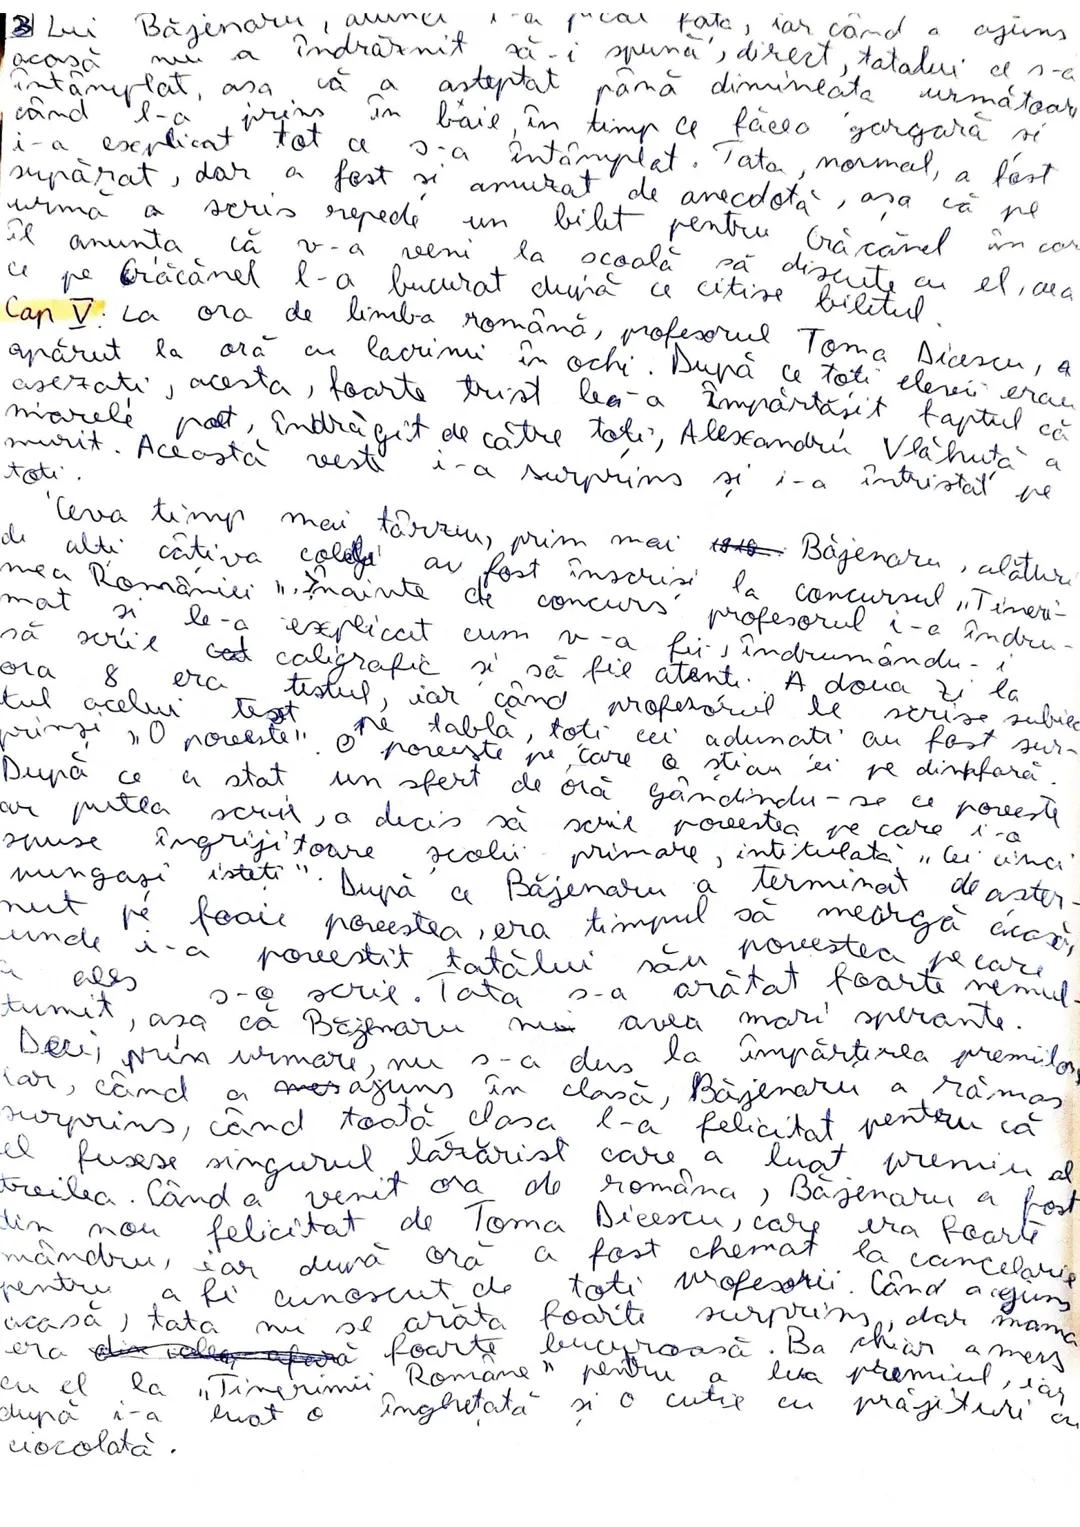 3 Lui Băjenaru, atunci i-a picat fata, iar când a ajuns
acasă nu a îndrăznit să-i spună, direct, tatălui ce s-a
întâmplat, asa că a asteptat până dimineata următoare
când l-a prins în baie, în timp ce făcea gargară si
i-a explicat tot ce s-a întâmplat. Tata, normal, a fost
supărat, dar a fost si amuzat de anecdotă, asa că pe
urmă a scris repede un bilet pentru Crăcănel în care
îl anunta că v-a veni la scoală să discute cu el, cea
ce pe Crăcănel l-a bucurat după ce citise biletul.
Cap V: La ora de limba română, profesorul Toma Dicescu, a
apărut la oră cu lacrimi în ochi. După ce toti elevii erau
asezati, acesta, foarte trist le-a împărtăsit faptul că
marele poet, îndrăgit de către toti, Alexandru Vlăhută a
murit. Această veste i-a surprins si i-a întristat pe
toti.
Ceva timp mai târziu, prim mai Băjenaru, alături
de alti câtiva colegi au fost înscrisi la concursul „Timeri-
mea României". Înainte de concurs profesorul i-a îndru-
mat si le-a explicat cum v-a fi, îndrumându-i
să scrie caligrafic si să fie atenti. A doua zi la
ora 8 era testul, iar când profesorul le scrise subiec
tul acelui test pe tablă, toti cei adunati au fost sur-
prinsi „O poveste". O poveste pe care o stiau ei pe dinafară.
După ce a stat un sfert de oră gândindu-se ce poveste
ar putea scrie, a decis să scrie povestea pe care i-o
spuse îngrijitoare scolii primare, intitulată „Cei cinci
pungasi isteti". După ce Băjenaru a terminat de aster-
nut pe foaie povestea, era timpul să meargă acasă,
unde i-a povestit tatălui său povestea pe care
a ales s-o scrie. Tata s-a arătat foarte nemul-
tumit, asa că Băjenaru nu avea mari sperante.
Deci, prin urmare, nu s-a dus la împărtirea premiilor,
iar, când a ajuns în clasă, Băjenaru a rămas
surprins, când toată clasa l-a felicitat pentru că
el fusese singurul lazărist care a luat premiu al
treilea. Când a venit ora de româna, Băjenaru a fost
din nou felicitat de Toma Dicescu, care era foarte
mândru, iar după oră a fost chemat la cancelarie
pentru a fi cunoscut de toti profesorii. Când a ajuns
acasă, tata nu se arăta foarte surprins, dar mama
era foarte bucuroasă. Ba chiar a mers
cu el la „Tinerimii Române" pentru a lua premiul, iar
după i-a luat o înghetată si o cutie cu prăjituri cu
ciocolată.